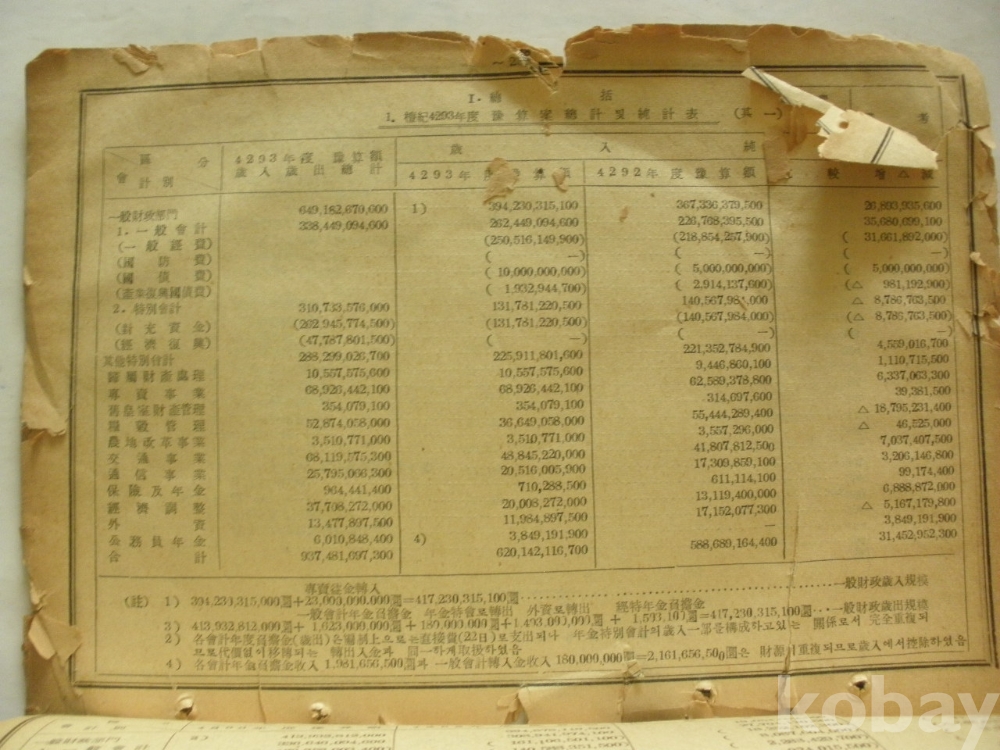 I. 總 括
1. 檀紀4293年度 豫算案總計 및 純計表 (其一)
區 分 4293年度 豫算額 歲 入 純
會計別 歲入歲出總計 4293年度豫算額 4292年度豫算額 較 增△減
一般財政部門 649,182,670,600 1) 394,230,315,100 367,336,379,500 26,893,935,600
1. 一般會計 338,449,094,600 262,449,094,600 226,768,395,500 35,680,699,100
(一般經費) (250,516,149,900) (218,854,257,900) ( 31,661,892,000)
(國防費) ( —) ( —) ( —)
(國債費) ( 10,000,000,000) ( 5,000,000,000) ( 5,000,000,000)
(產業復興國債費) ( 1,932,944,700) ( 2,914,137,600) (△ 981,192,900)
2. 特別會計 310,733,576,000 131,781,220,500 140,567,984,000 △ 8,786,763,500
(對充資金) (262,945,774,500) (131,781,220,500) (140,567,984,000) (△ 8,786,763,500)
(經濟復興) (47,787,801,500) ( —) ( —) ( —)
其他特別會計 288,299,026,700 225,911,801,600 221,352,784,900 4,559,016,700
歸屬財產處理 10,557,575,600 10,557,575,600 9,446,860,100 1,110,715,500
專賣事業 68,926,442,100 68,926,442,100 62,589,378,800 6,337,063,300
舊皇室財產管理 354,079,100 354,079,100 314,697,600 39,381,500
糧穀管理 52,874,058,000 36,649,058,000 55,444,289,400 △ 18,795,231,400
農地改革事業 3,510,771,000 3,510,771,000 3,557,296,000 △ 46,525,000
交通事業 68,119,575,300 48,845,220,000 41,807,812,500 7,037,407,500
通信事業 25,795,066,300 20,516,005,900 17,309,859,100 3,206,146,800
保險及年金 964,441,400 710,288,500 611,114,100 99,174,400
經濟調整 37,708,272,000 20,008,272,000 13,119,400,000 6,888,872,000
外資 13,477,897,500 11,984,897,500 17,152,077,300 △ 5,167,179,800
公務員年金 6,010,848,400 4) 3,849,191,900 — 3,849,191,900
合計 937,481,697,300 620,142,116,700 588,689,164,400 31,452,952,300
專賣益金轉入
(註) 1) 394,230,315,000圜+23,000,000,000圜=417,230,315,100圜 一般財政歲入規模
一般會計年金召奮金 年金特會로轉出 外資로轉出 經特年金召奮金
3) 413,932,812,000圜+ 1,623,000,000圜+ 189,000,000圜+1,493,000,000圜+ 1,503,100圜=417,230,315,100圜 一般財政歲出規模
4) 各會計年金召奮金收入 1,981,656,500圜과 一般會計轉入金收入 180,000,000圜=2,161,656,500圜은 財源이重複되므로歲入에서控除하였음
kobay